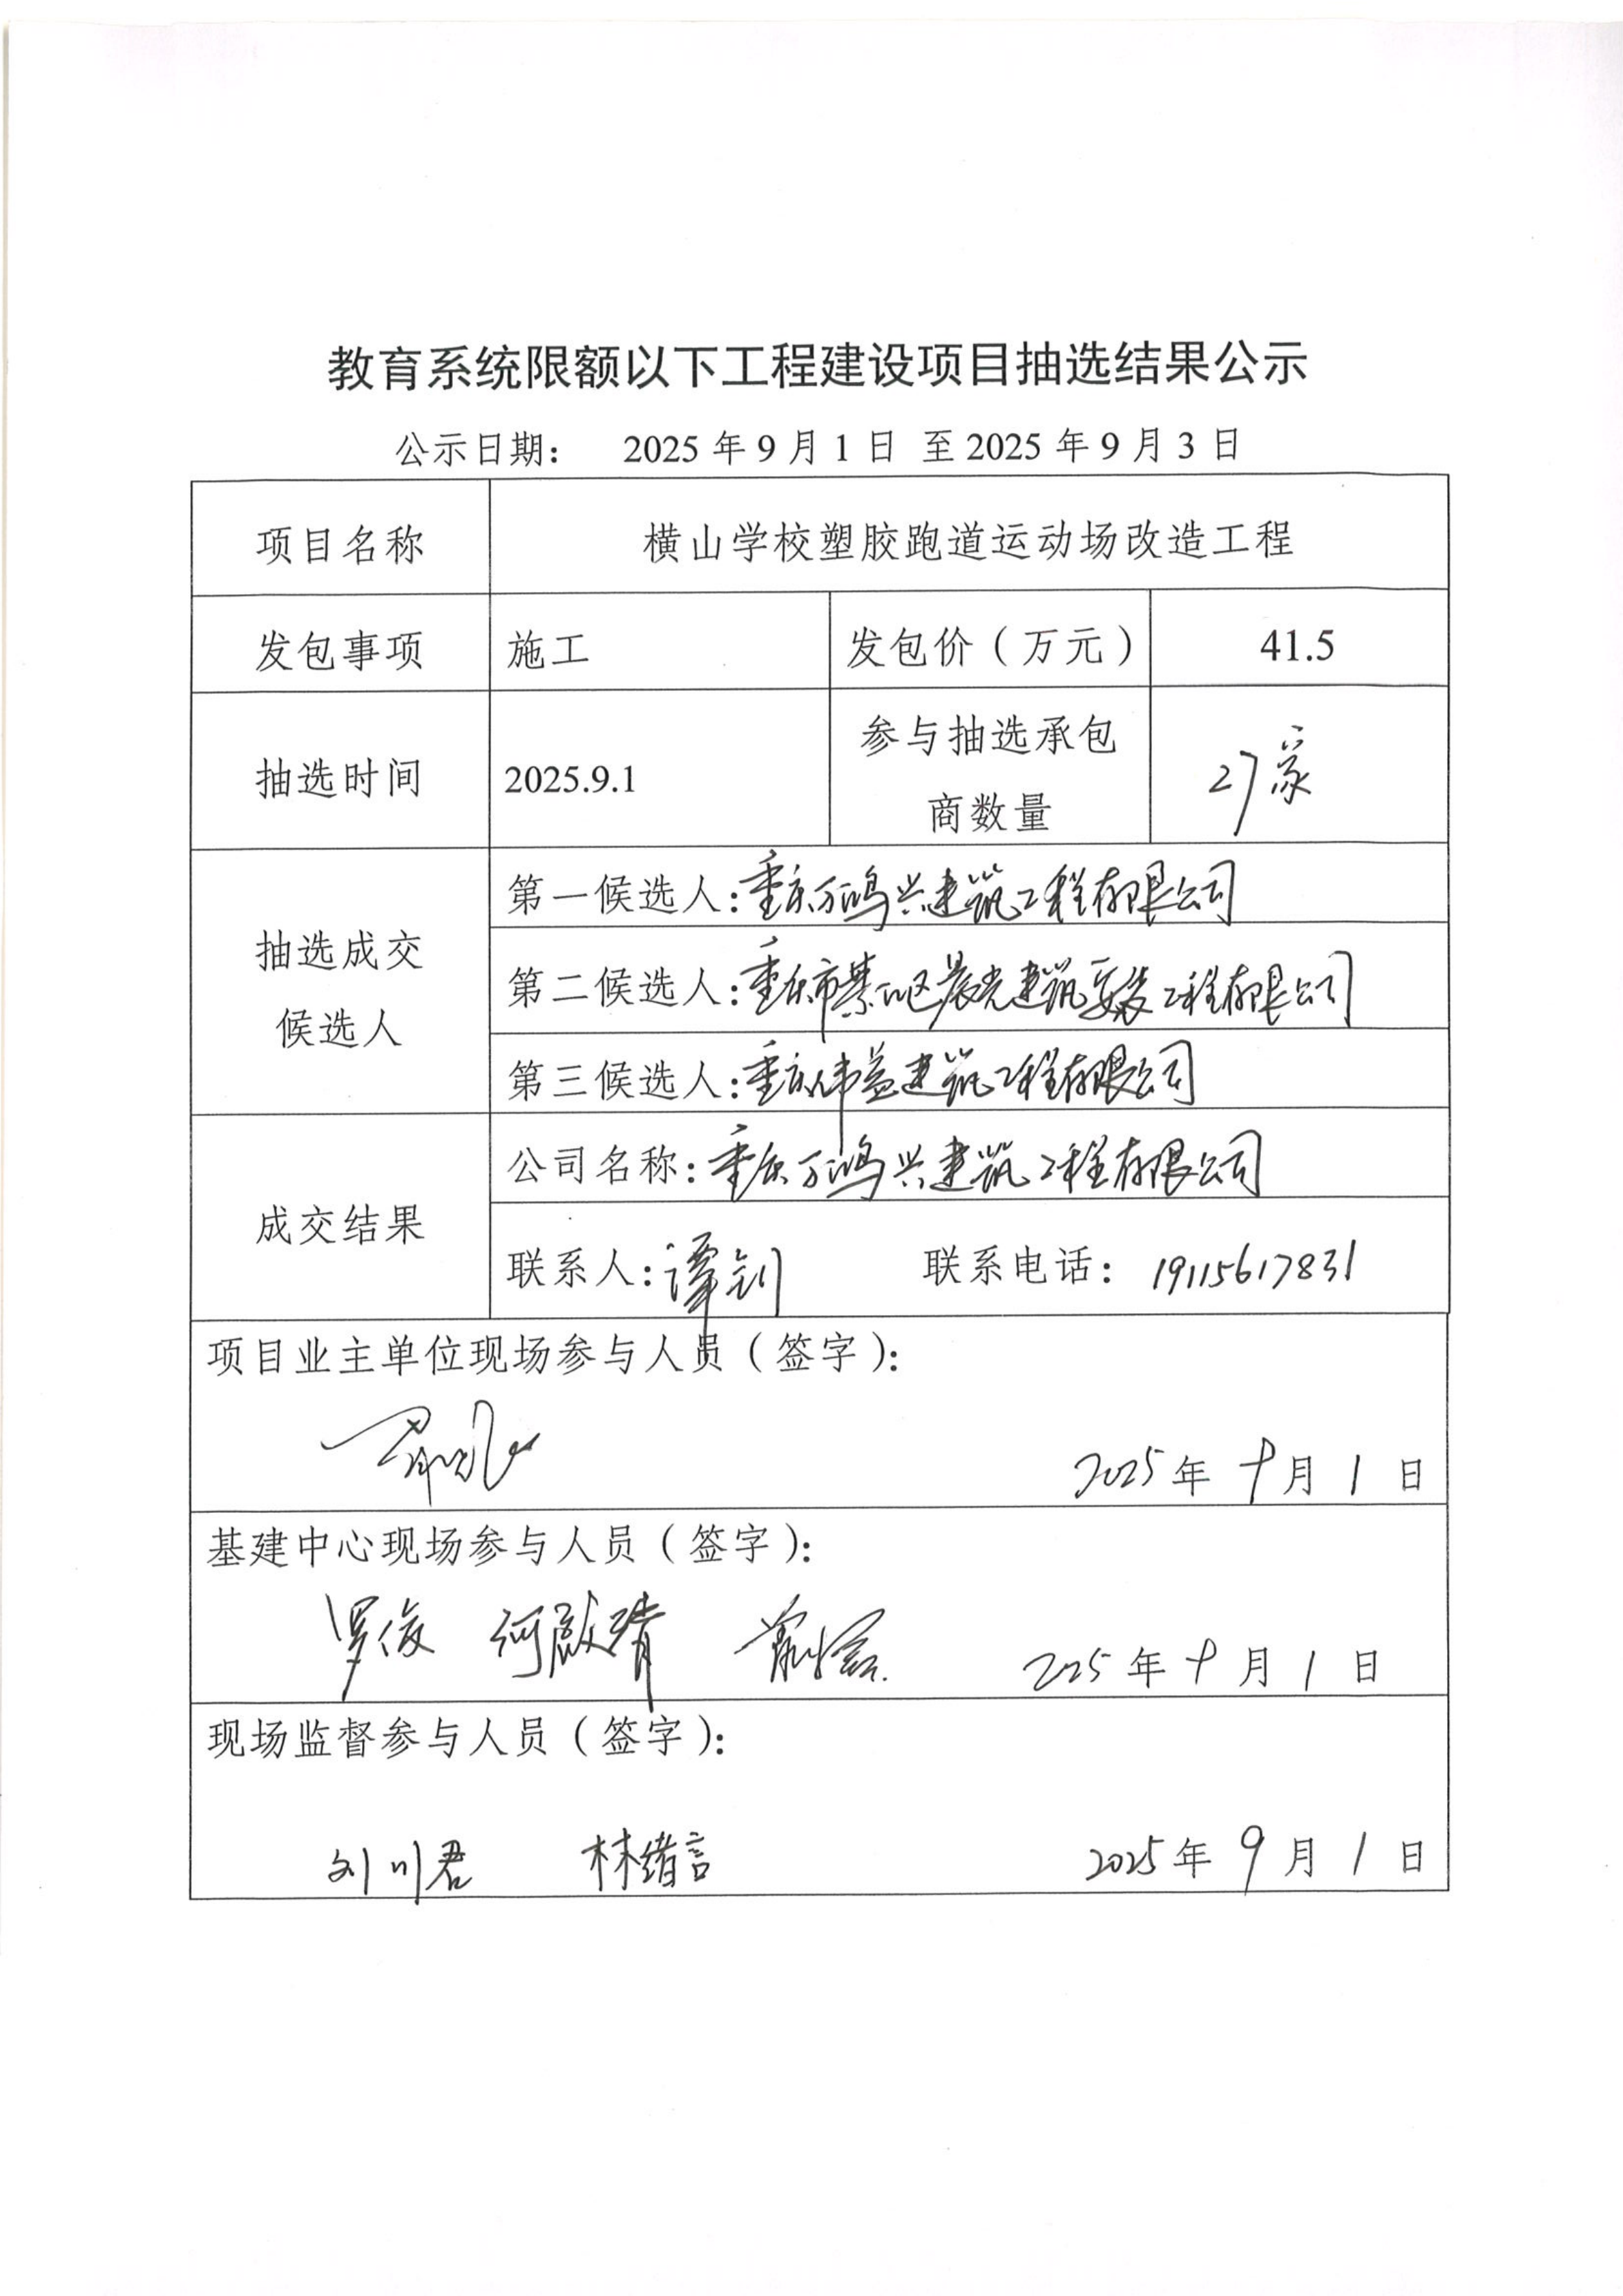 教育系统限额以下工程建设项目抽选结果公示
公示日期： 2025 年 9 月 1 日 至 2025 年 9 月 3 日
项目名称 横山学校塑胶跑道运动场改造工程
发包事项 施工 发包价（万元） 41.5
抽选时间 2025.9.1 参与抽选承包商数量 27家
抽选成交候选人
第一候选人：重庆万鸿兴建筑工程有限公司
第二候选人：重庆市綦江区晨光建筑安装工程有限公司
第三候选人：重庆伟益建筑工程有限公司
成交结果
公司名称：重庆万鸿兴建筑工程有限公司
联系人：谭钊 联系电话： 19115617831
项目业主单位现场参与人员（签字）：
2025 年 9 月 1 日
基建中心现场参与人员（签字）：
罗俊 2025 年 9 月 1 日
现场监督参与人员（签字）：
刘川君 林绪言 2025 年 9 月 1 日